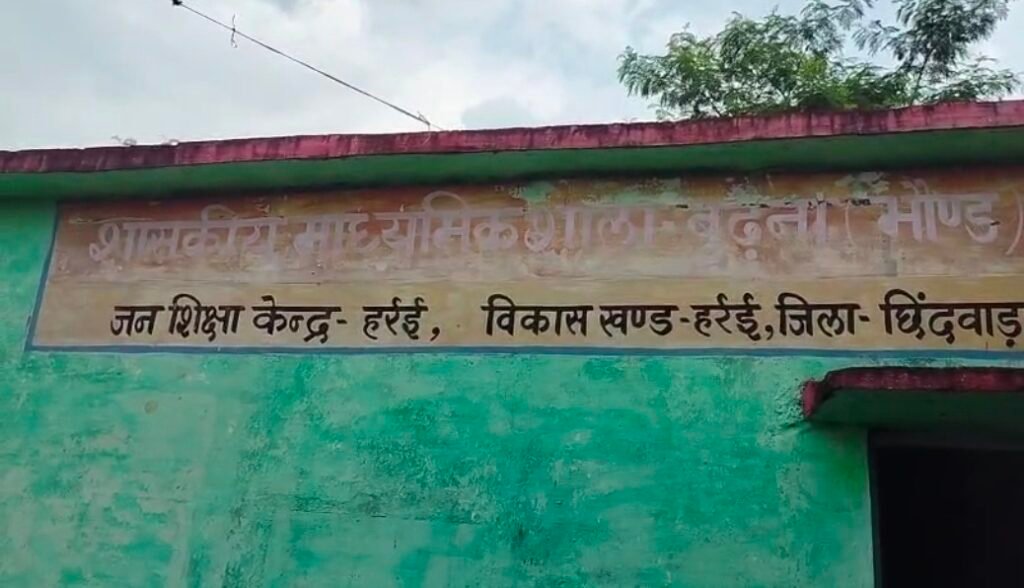 शासकीय माध्यमिक शाला- बुढ़ना (भौण्ड)
जन शिक्षा केन्द्र- हर्रई, विकास खण्ड-हर्रई, जिला- छिंदवाड़